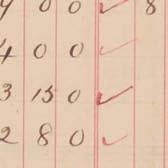 9 0 0 ✓ 8
4 0 0 ✓
3 15 0 ✓
2 8 0 ✓